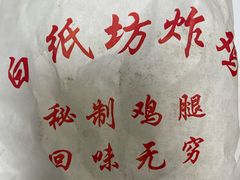 白纸坊炸鸡
秘制鸡腿
回味无穷